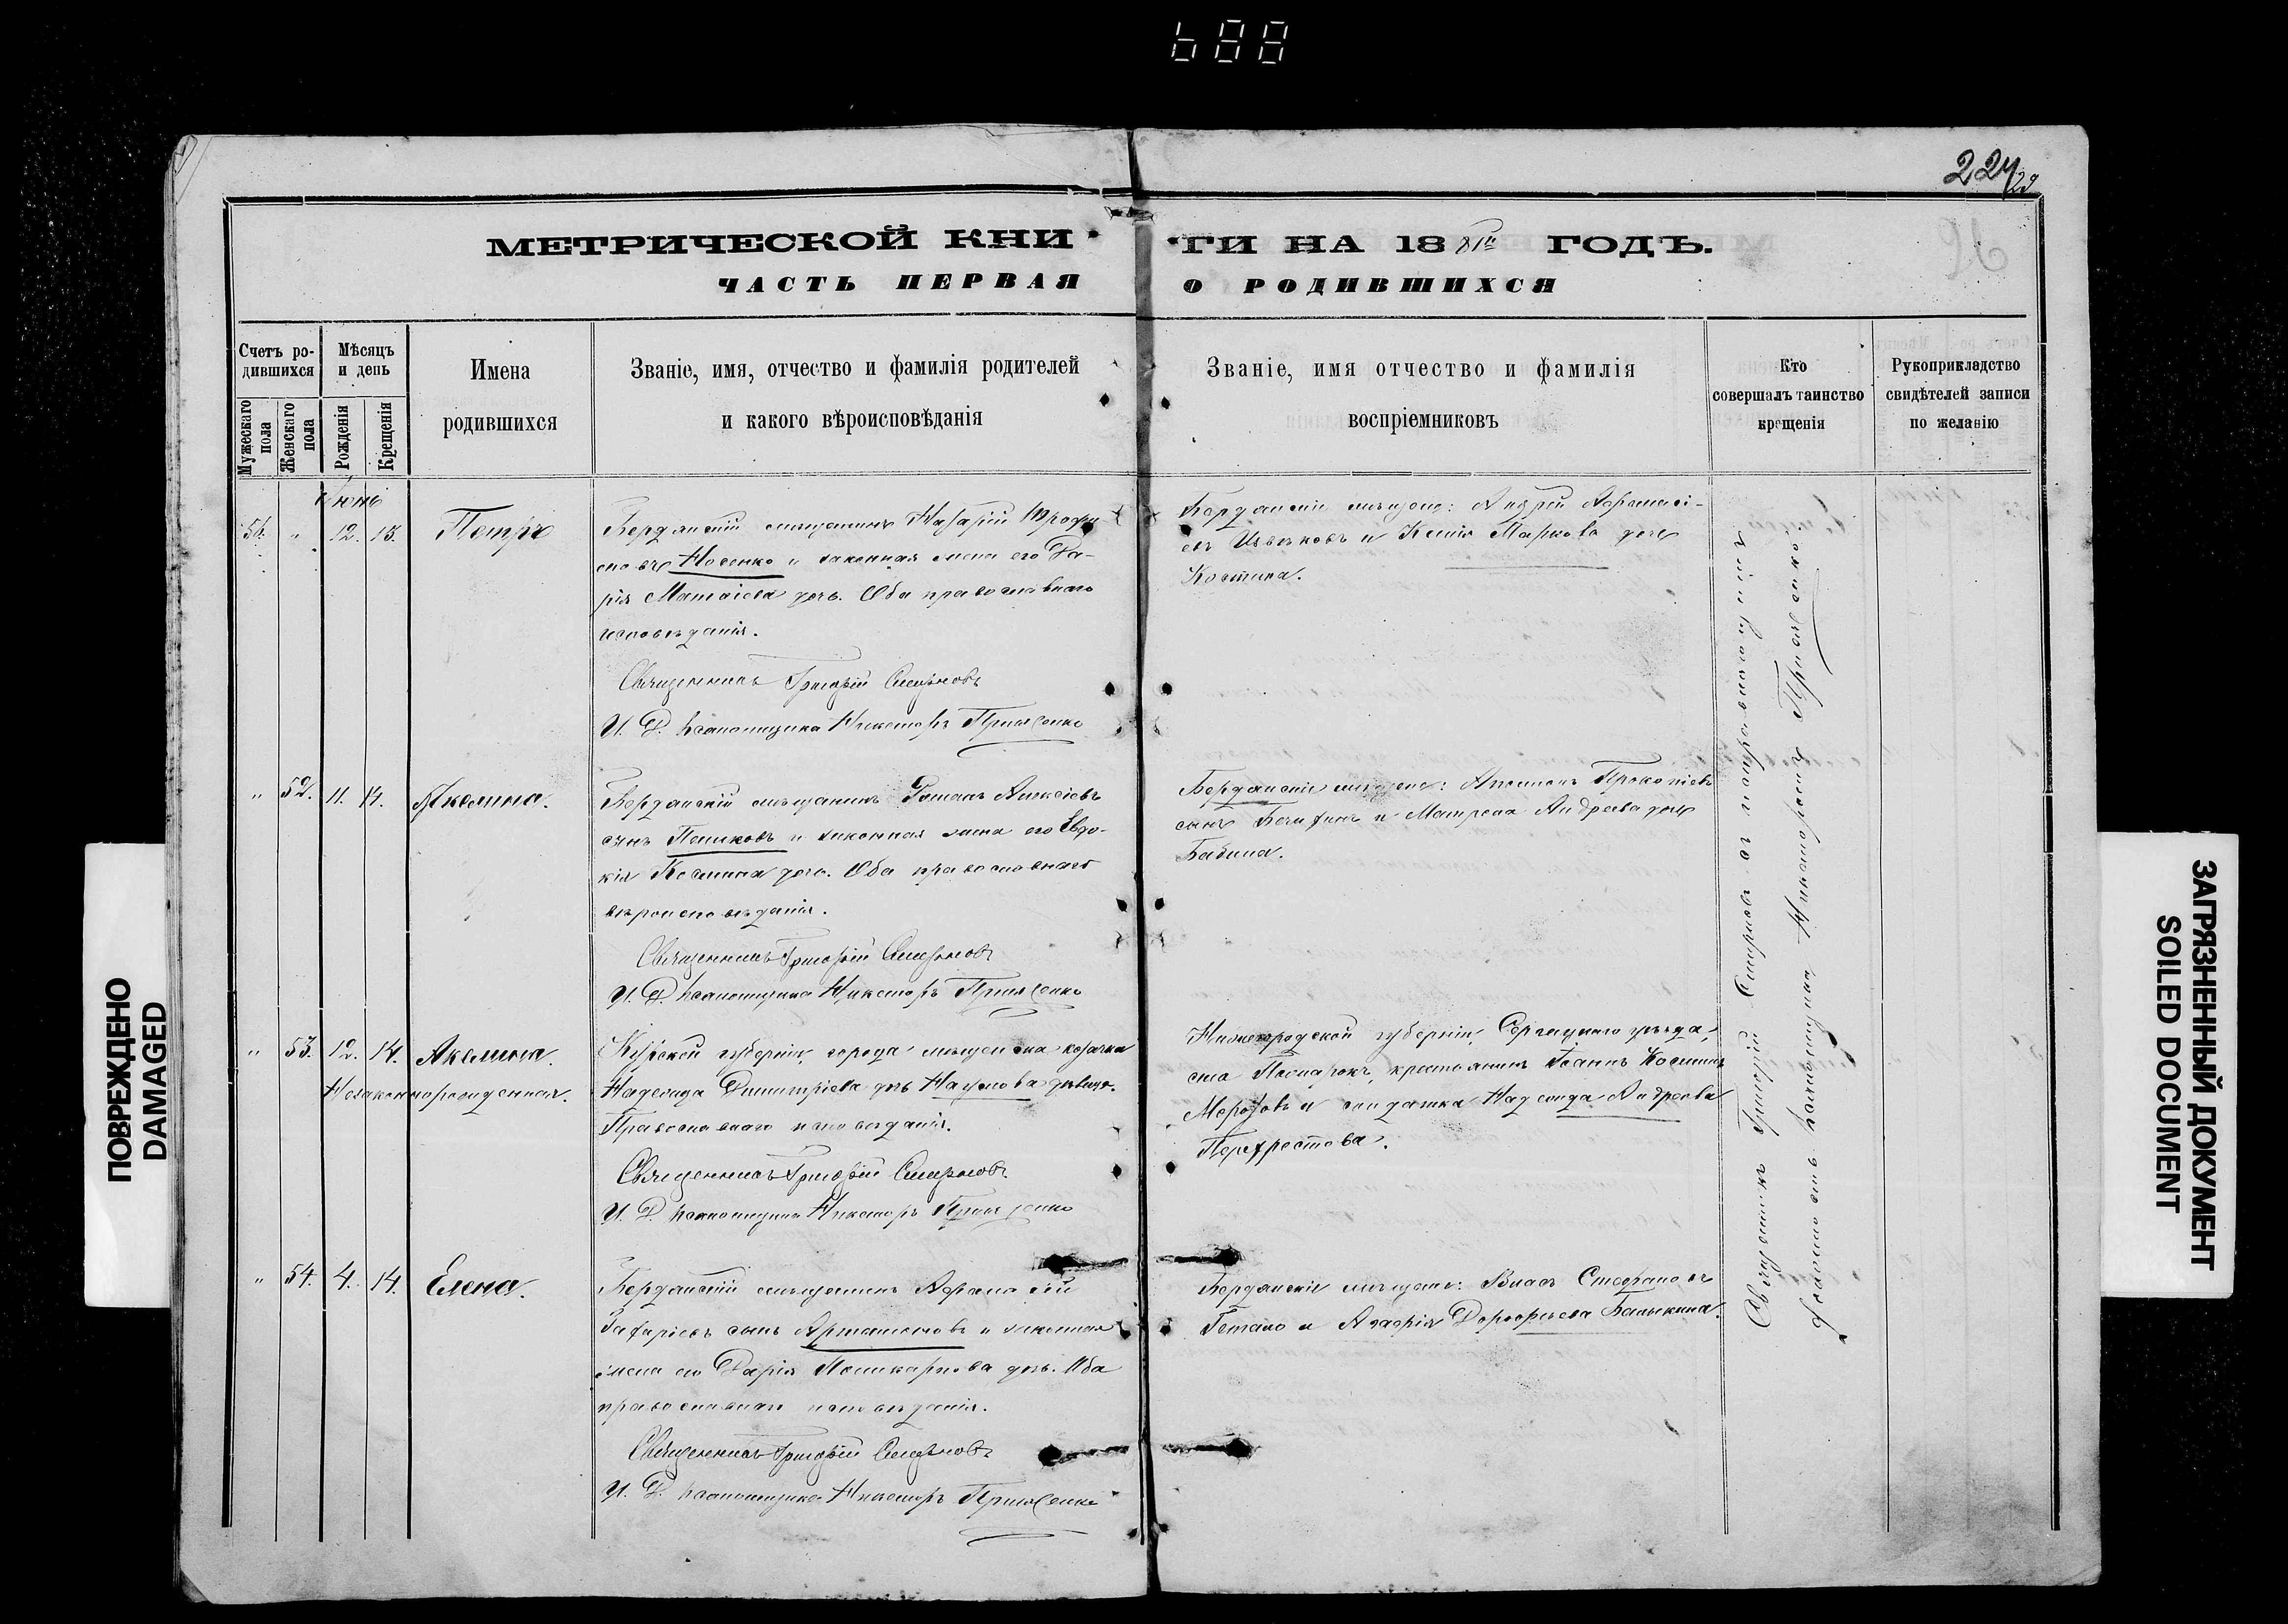 688
224
29
МЕТРИЧЕСКОЙ КНИГИ НА 1881й ГОДЪ.
ЧАСТЬ ПЕРВАЯ О РОДИВШИХСЯ
Счетъ ро-
дившихся
Мужескаго
пола
Женскаго
пола
Мѣсяцъ
и день
Рожденія
Крещенія
Имена
родившихся
Званіе, имя, отчество и фамилія родителей
и какого вѣроисповѣданія
Званіе, имя отчество и фамилія
воспріемниковъ
Кто
совершалъ таинство
крещенія
Рукоприкладство
свидѣтелей записи
по желанію
Іюнь
" 12. 13. Петръ
Бердянскій мѣщанинъ Назарій Трофи-
мовъ Носенко и законная жена его Да-
рія Матвіева дочь. Оба православнаго
исповѣданія.
Священникъ Григорій Смирновъ
И. Д. псаломщика Никаноръ
Бердянскіе мѣщане: Андрей Афанасі-
евъ Цвѣтковъ и Ксенія Маркова дочь
Костина.
" 52. 11. 14. Акилина.
Бердянскій мѣщанинъ Романъ Алексіевъ
сынъ Пашковъ и законная жена его Евдо-
кія Косьмина дочь. Оба православнаго
вѣроисповѣданія.
Священникъ Григорій Смирновъ
И. Д. псаломщика Никаноръ
Бердянскіе мѣщане: Прокопіевъ
сынъ и Матрона Андреева дочь
Бабина.
" 53. 12. 14. Акилина.
Незаконнорожденная.
Курской губерніи, города козачка
Надежда Димитріева дочь Наумова дѣвица.
Православнаго исповѣданія.
Священникъ Григорій Смирновъ
И. Д. псаломщика Никаноръ
Нижегородской губерніи, Сергацкаго уѣзда,
села крестьянинъ Іоаннъ Косминъ
Морозовъ и солдатка Надежда Андреева
Перехрестова.
" 54. 4. 14. Елена.
Бердянскій мѣщанинъ Афанасій
Захаріевъ сынъ Арташеновъ и законная
жена его Дарія Поликарпова дочь. Оба
православнаго исповѣданія.
Священникъ Григорій Смирновъ
И. Д. псаломщика Никаноръ
Бердянскіе мѣщане: Власъ Стефановъ
Гетало и Дорофѣева Балыкина.
Священникъ Григорій Смирновъ съ исправляющимъ
должность псаломщика Никаноромъ
ПОВРЕЖДЕНО
DAMAGED
ЗАГРЯЗНЕННЫЙ ДОКУМЕНТ
SOILED DOCUMENT